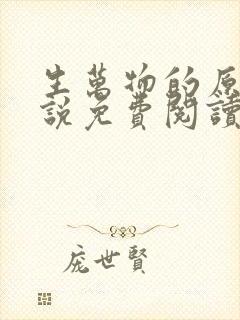 生萬物的原
說免費閱讀
庞世賢